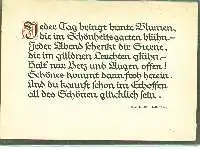 Jeder Tag bringt bunte Blumen,
die im Schönheitsgarten blühn. –
Jeder Abend schenkt dir Sterne,
die im goldnen Leuchten glühn. –
Halt nur Herz und Augen offen!
Schönes kommt dann froh herein.
Und du kannst schon im Erhoffen
all des Schönen glücklich sein. –